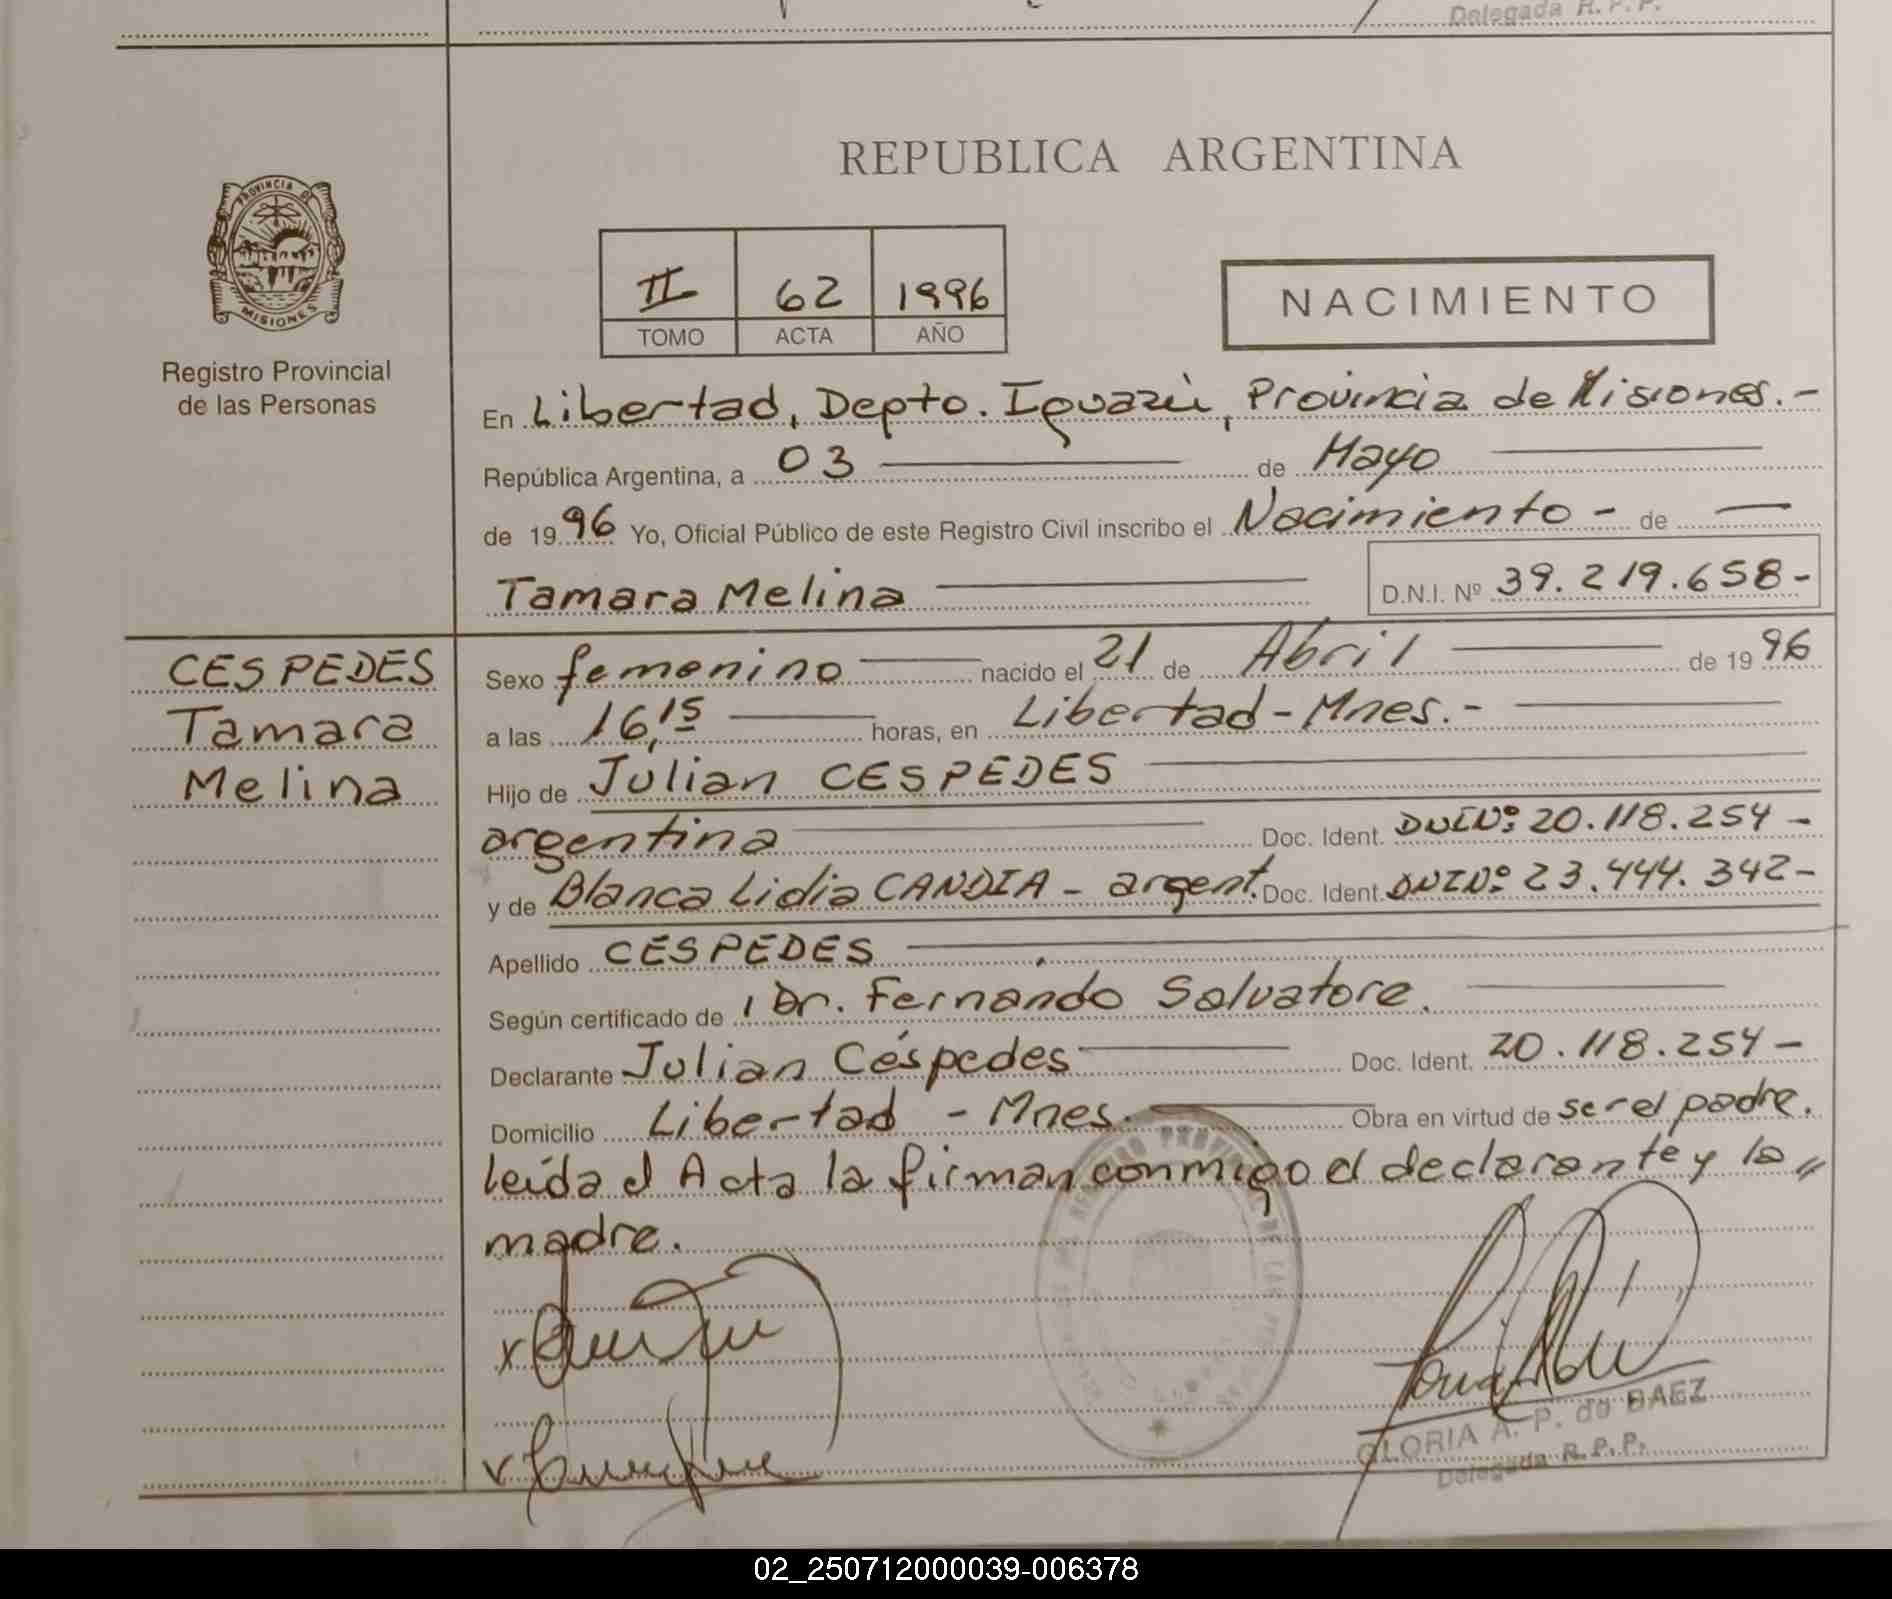 Delegada R.P.P.
REPUBLICA ARGENTINA
PROVINCIA DE
MISIONES
Registro Provincial
de las Personas
II 62 1996
TOMO ACTA AÑO
NACIMIENTO
En Libertad, Depto. Iguazú, Provincia de Misiones.-
República Argentina, a 03 de Mayo
de 1996 Yo, Oficial Público de este Registro Civil inscribo el Nacimiento - de —
Tamara Melina D.N.I. Nº 39.219.658-
CESPEDES
Tamara
Melina
Sexo femenino nacido el 21 de Abril de 1996
a las 16,15 horas, en Libertad - Mnes.-
Hijo de Julian CESPEDES
argentina Doc. Ident. DNINº: 20.118.254-
y de Blanca Lidia CANDIA - argent. Doc. Ident. DNINº: 23.444.342-
Apellido CESPEDES
Según certificado de Dr. Fernando Salvatore.
Declarante Julian Céspedes Doc. Ident. 20.118.254-
Domicilio Libertad - Mnes. Obra en virtud de ser el padre.
leida el Acta la firman conmigo el declarante y la "
madre.
GLORIA A. P. de BAEZ
Delegada R.P.P.
02_250712000039-006378